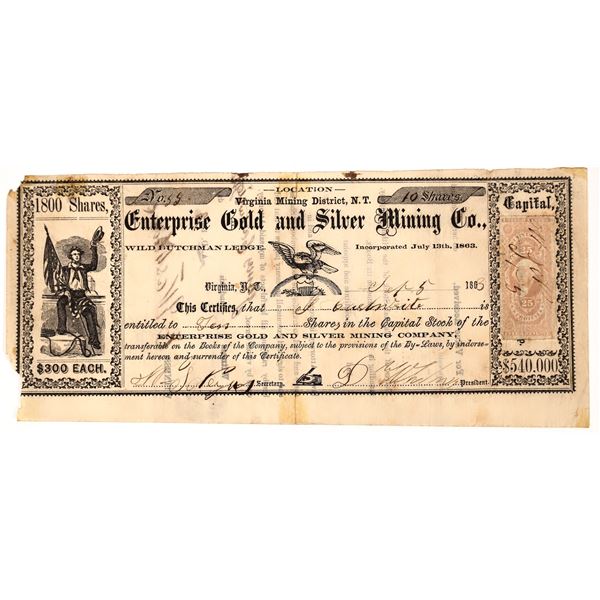 LOCATION
Virginia Mining District, N. T.
No. 55
10 Shares
1800 Shares,
Capital,
Enterprise Gold and Silver Mining Co.,
WILD DUTCHMAN LEDGE.
Incorporated July 13th, 1863.
Virginia, N. T., Sep 5 1863
This Certifies, that is
entitled to Ten Shares in the Capital Stock of the
ENTERPRISE GOLD AND SILVER MINING COMPANY,
transferable on the Books of the Company, subject to the provisions of the By-Laws, by indorse-
ment hereon and surrender of this Certificate.
Secretary.
President.
$300 EACH.
$540.000
25